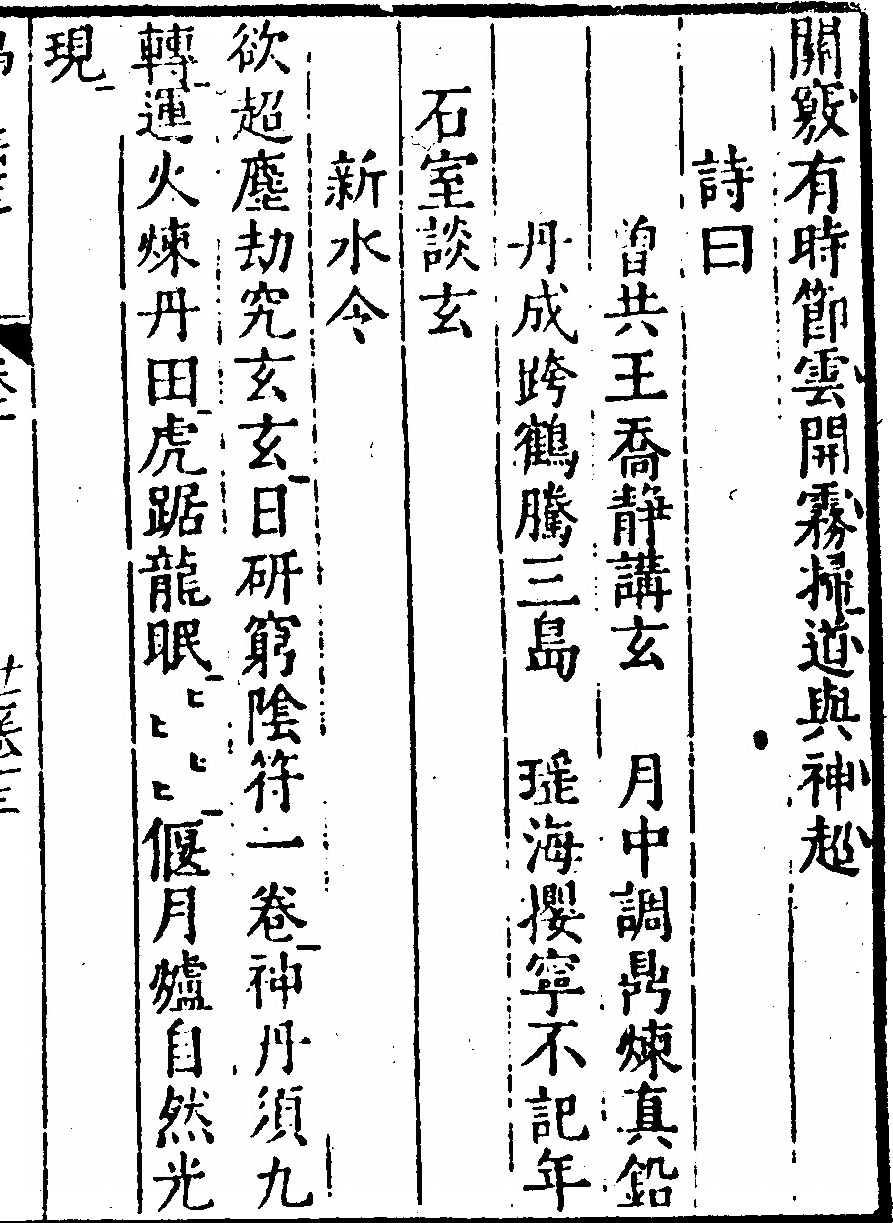 關竅有時節雲開霧掃道與神超
詩曰
曾共王喬靜講玄　月中調鼎煉真鉛
丹成跨鶴騰三島　瑶海攖寧不記年
石室談玄
新水令
欲超塵劫究玄玄日研窮陰符一卷神丹須九
轉運火煉丹田虎踞龍眠〻〻〻〻偃月爐自然光
現